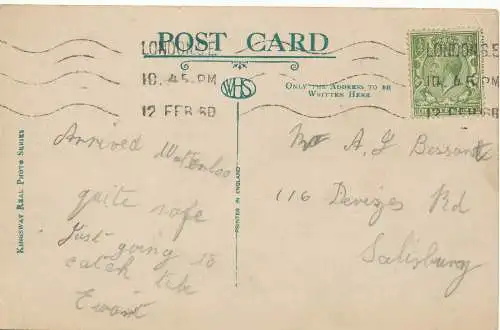 POST CARD
LONDON.S.E.
10.45 PM
12 FEB 60
LONDON.S.E
10.45 PM
12 FEB 60
WHS
ONLY THE ADDRESS TO BE
WRITTEN HERE
KINGSWAY REAL PHOTO SERIES
PRINTED IN ENGLAND
Arrived Waterloo
quite safe
Just going to
catch tube
Ewart
A G Bessant
116 Devizes Rd
Salisbury